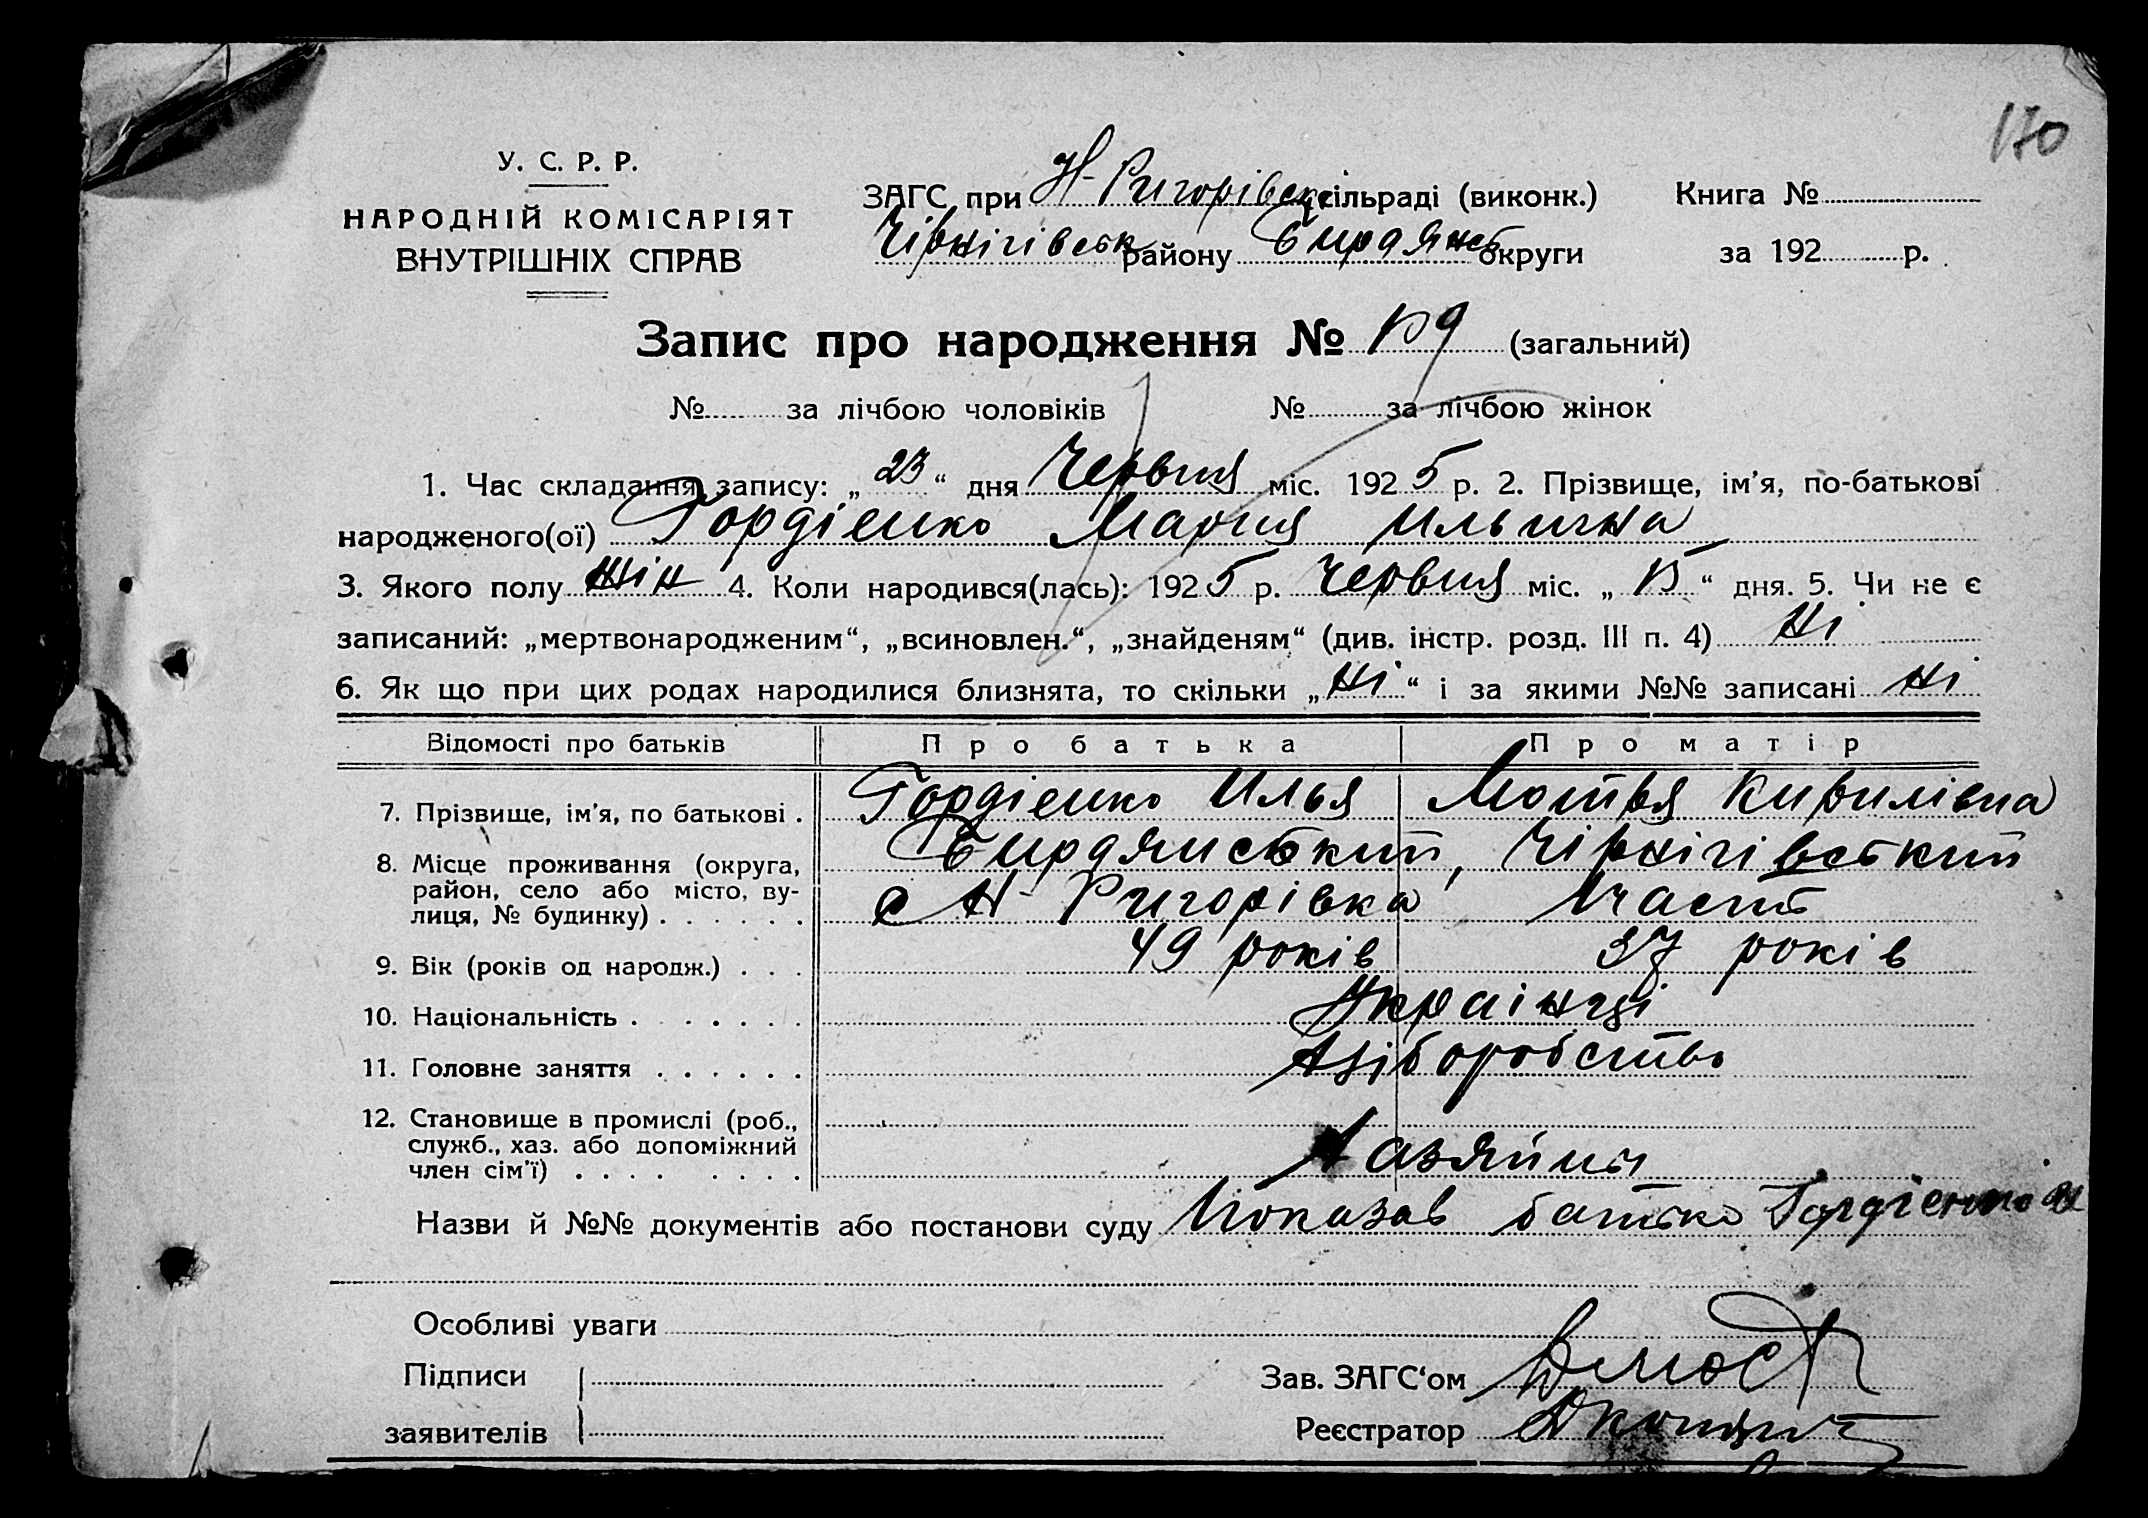 170
У. С. Р. Р.
НАРОДНІЙ КОМІСАРІЯТ
ВНУТРІШНІХ СПРАВ
ЗАГС при Н-Ригорівск сільраді (виконк.)
Чірнігівськ району Бирдянсь округи
Книга №
за 192 р.
Запис про народження № (загальний)
№ за лічбою чоловіків № за лічбою жінок
1. Час складання запису: „23“ дня Червня міс. 1925 р. 2. Прізвище, ім’я, по-батькові
народженого(ої) Гордіенко Мария Ильична
3. Якого полу жін 4. Коли народився(лась): 1925 р. Червня міс. „15“ дня. 5. Чи не є
записаний: „мертвонародженим“, „всиновлен.“, „знайденям“ (див. інстр. розд. III п. 4) Ні
6. Як що при цих родах народилися близнята, то скільки „Ні“ і за якими №№ записані Ні
Відомості про батьків Про батька Про матір
7. Прізвище, ім’я, по батькові . Гордіенко Илья Мотря Кирилівна
8. Місце проживання (округа, район, село або місто, вулиця, № будинку) Бирдянський, Чірнігівський
с Н-Ригорівка
9. Вік (років од народж.) 49 років 37 років
10. Національність Украінці
11. Головне заняття Хліборобство
12. Становище в промислі (роб., служб., хаз. або допоміжний член сім’ї) Хазяйны
Назви й №№ документів або постанови суду Показав батько Гордіенко И
Особливі уваги
Підписи
заявителів
Зав. ЗАГС‘ом
Реєстратор